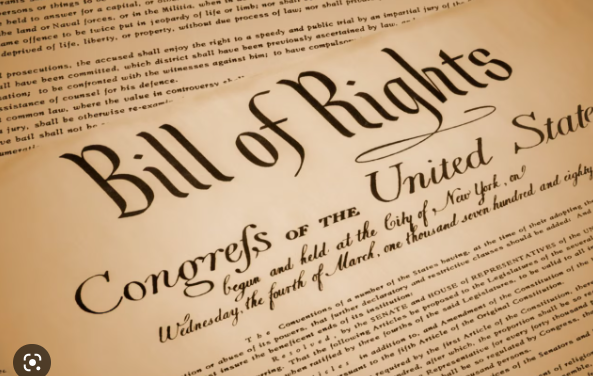 ersons or things to be
be held to answer for a capital, or
the land or Naval forces, or in the Militia, when in
ame offence to be twice put in jeopardy of life or limb; nor shall
deprived of life, liberty, or property, without due process of law; nor shall
prosecutions, the accused shall enjoy the right to a speedy and public trial by an impartial jury of the
all have been committed, which district shall have been previously ascertained by law,
to be confronted with the witnesses against him; to have compulsory
ssistance of counsel for his defence.
common law, where the value in controversy
jury, shall be otherwise re-exami
ve bail shall not be
numerati
Bill of Rights
Congreſs OF THE United State
begun and held at the City of New York, on
Wednesday, the fourth of March, one thousand seven hundred and eighty
The Conventions of a number of the States having, at the time of their adopting the
tion or abuse of its powers, that further declaratory and restrictive clauses should be added: And
insure the beneficent ends of its institution:
Resolved, by the SENATE and HOUSE of REPRESENTATIVES of the UN
ring, That the following Articles be proposed to the Legislatures of the several
when ratified by three fourths of the said Legislatures, to be valid to all
in addition to, and Amendment of the Constitution
uant to the fifth Article of the Original Constitution.
by the first Article of the Constitution, there
after which, the proportion shall be so re
Representative for every forty thousand
Congress, th
persons.
of the Senators and